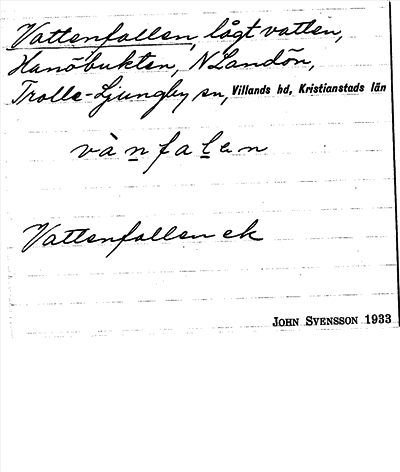 Vattenfallen, lågt vatten,
Hanöbukten, N Landön,
Trolle-Ljungby sn, Villands hd, Kristianstads län
vànfalen
Vattenfallen ek
JOHN SVENSSON 1933